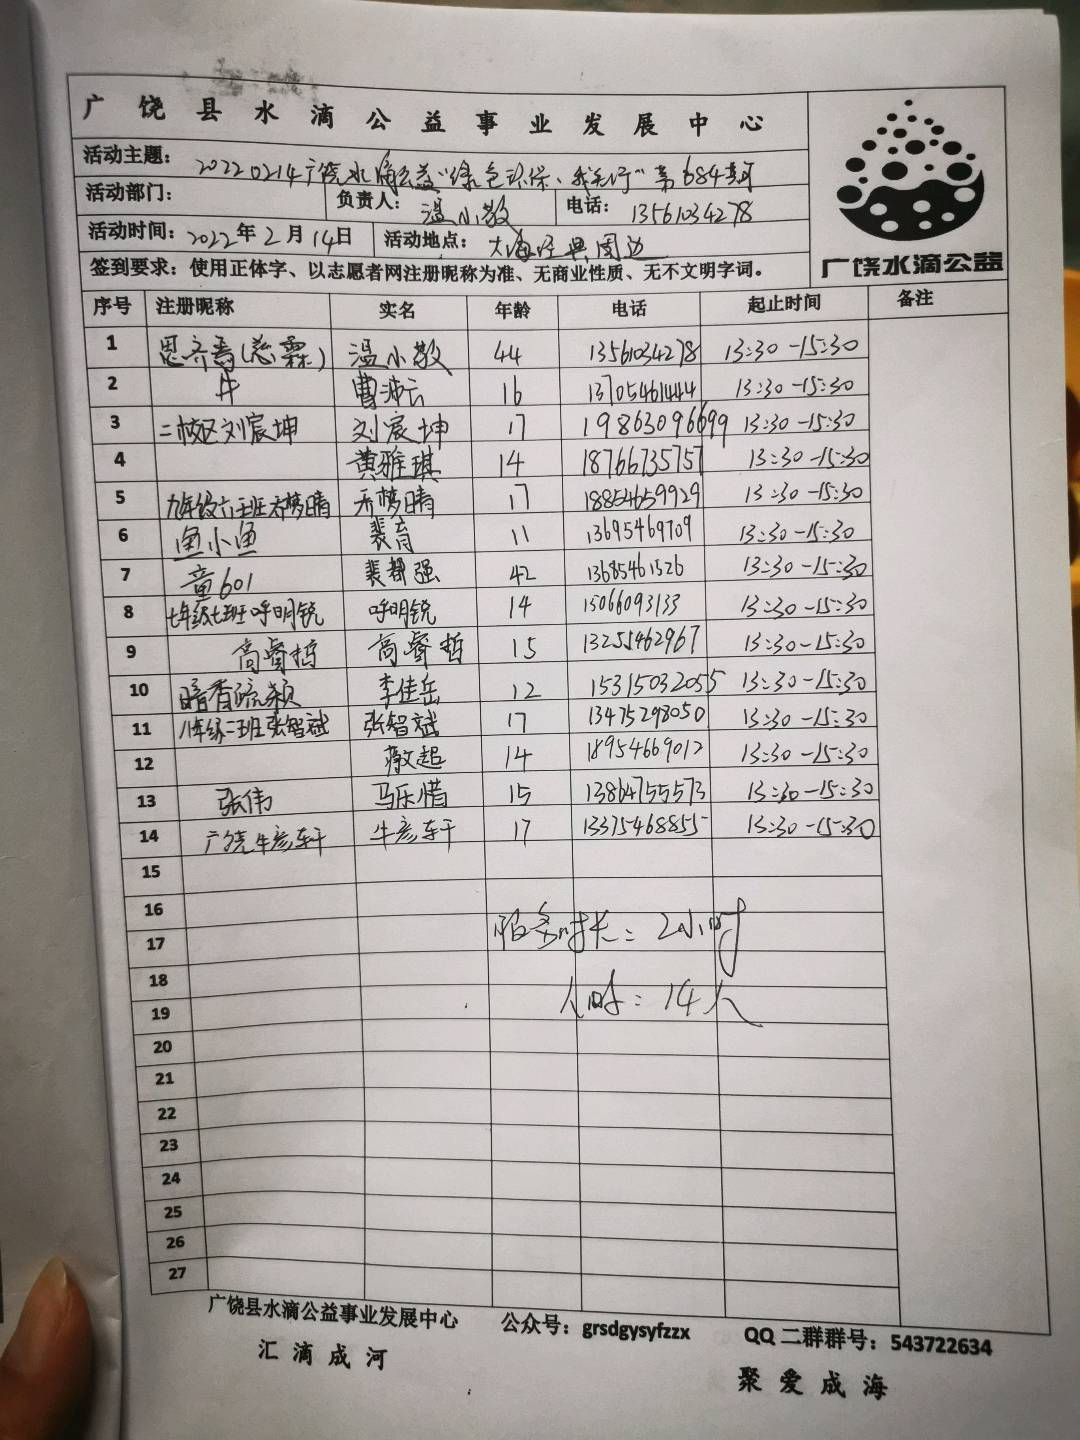 广饶县水滴公益事业发展中心
活动主题： 20220214广饶水滴公益“绿色环保、我先行”第684期
活动部门： 负责人：温小敏 电话：13561034278
活动时间：2022年2月14日 活动地点：大海经典周边
签到要求：使用正体字、以志愿者网注册昵称为准、无商业性质、无不文明字词。
广饶水滴公益
序号 注册昵称 实名 年龄 电话 起止时间 备注
1 思齐 温小敏 44 13561034278 13:30-15:30
2 牛 曹沛云 16 13705461444 13:30-15:30
3 二校区刘宸坤 刘宸坤 17 19863096699 13:30-15:30
4 黄雅琪 14 18766735757 13:30-15:30
5 九年级六班乔梦晴 乔梦晴 17 18854659929 13:30-15:30
6 鱼小鱼 裴育 11 13695469709 13:30-15:30
7 童601 裴都强 42 13685461326 13:30-15:30
8 七年级七班呼明锐 呼明锐 14 15066093133 13:30-15:30
9 高睿哲 高睿哲 15 13255462967 13:30-15:30
10 暗香疏颖 李佳岳 12 15315032055 13:30-15:30
11 八年级二班张智斌 张智斌 17 13475298050 13:30-15:30
12 超 14 18954669012 13:30-15:30
13 张伟 马乐惜 15 13864755573 13:30-15:30
14 广饶牛彦轩 牛彦轩 17 13375468855 13:30-15:30
15
16
服务时长：2小时
17
18
人时：14人
19
20
21
22
23
24
25
26
27
广饶县水滴公益事业发展中心 公众号：grsdgysyfzzx QQ二群群号：543722634
汇滴成河 聚爱成海